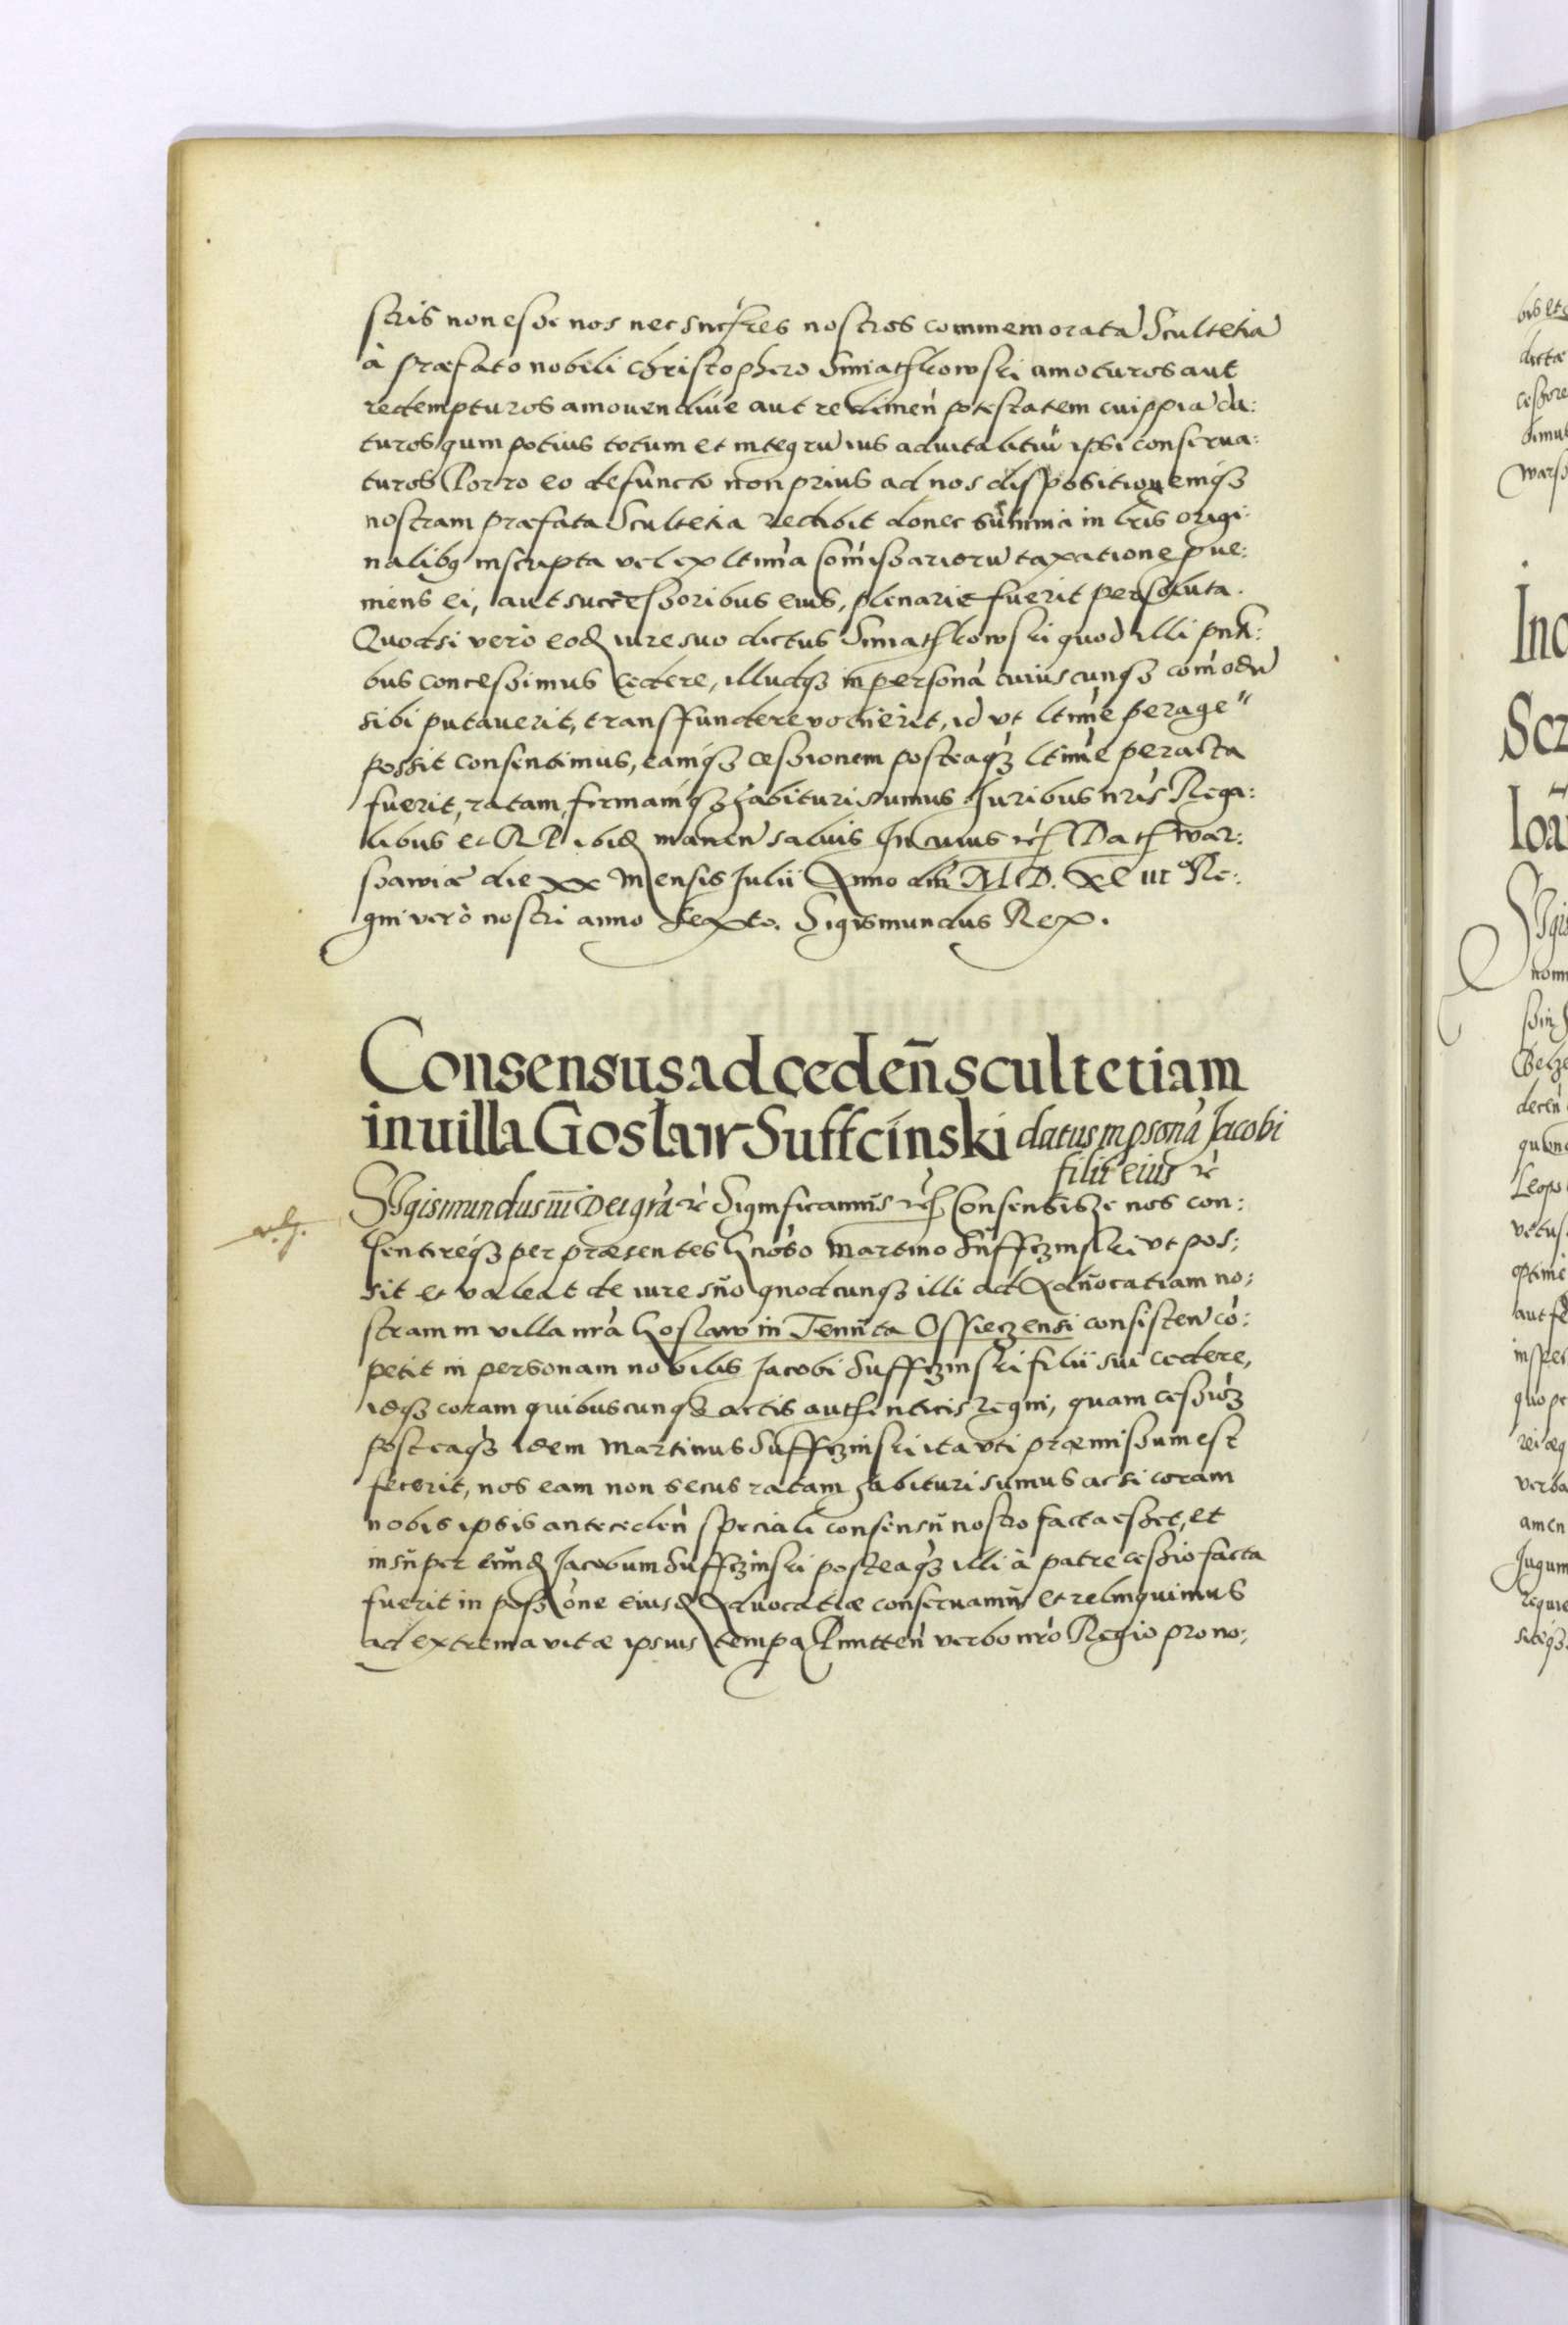 stris non esse nos nec succ̃res nostros commemoratã Scultetiã
à præfato nobili Christophero Smiathkowski amoturos aut
redempturos amouendiue aut redimeñ potestatem cuippiã da:
turos, qum potius totum et integrũ ius aduitalitiũ ipsi conserua:
turos Porro eo defuncto non prius ad nos dispositionemqȝ
nostram præfata Scultetia redibit donec summa in lr̃is origi:
nalibꝯ inscripta vel ex ltima com̃issariorũ taxatione pue:
niens ei, aut successoribus eius, plenarie fuerit persoluta.
Quodsi verò eod iure suo dictus Smiathkowski quod illi pñti:
bus concessimus cedere, illudqȝ in personã cuiuscunqȝ com̃odũ
sibi putauerit, transffundere voluerit, id vt ltim̃e perage"
possit consentimus, eamqȝ cessionem posteaqȝ ltim̃e peracta
fuerit, ratam, firmamqȝ habituri sumus Juribus nr̃is Rega:
libus et RP. ibid maneñ saluis In cuius rei Dat̃ War:
ssawiæ die xx Mensis Julii Anno dñi M.D.XC iii° Re:
gni verò nostri anno Sexto. Sigismundus Rex.
Consensus ad cedeñ scultetiam
in uilla Gosław Suffcínski datus in psonã Jacobi
filii eius rč
Sigismundus iii Dei grã rč Significamus rč Consensisse nos con:
sentireqȝ per præsentes Gnoso Martino Suffczinski vt pos:
sit et valeat de iure suo quodcunqȝ illi ad Aduocatiam no:
stram in villa nrã Goslaw in Tenuta Ossieczensi consisteñ cõ:
petit in personam nobilis Jacobi Suffczinski filii sui cedere,
idqȝ coram quibuscunqȝ actis authenticis regni, quam cessioȝ
posteaqȝ idem Martinus Suffczinski ita vti præmissum est
fecerit, nos eam non secus ratam habituri sumus ac si coram
nobis ipsis antecedeñ speciali consensu nostro facta esset, et
insuper eund Jacobum Suffczinski posteaqȝ illi à patre cessio facta
fuerit in possõne eiusd Aduocatiæ conseruamus et relinquimus
ad extrema vitæ ipsius tempa Pmitteñ verbo nrõ Regio pro no: